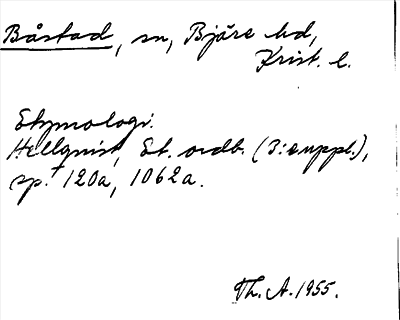 Båstad, sn, Bjäre hd,
Krist. l.
Etymologi.
Hellquist, Et. ordb. (3:e uppl.),
sp. 120a, 1062a.
Th. A. 1955.